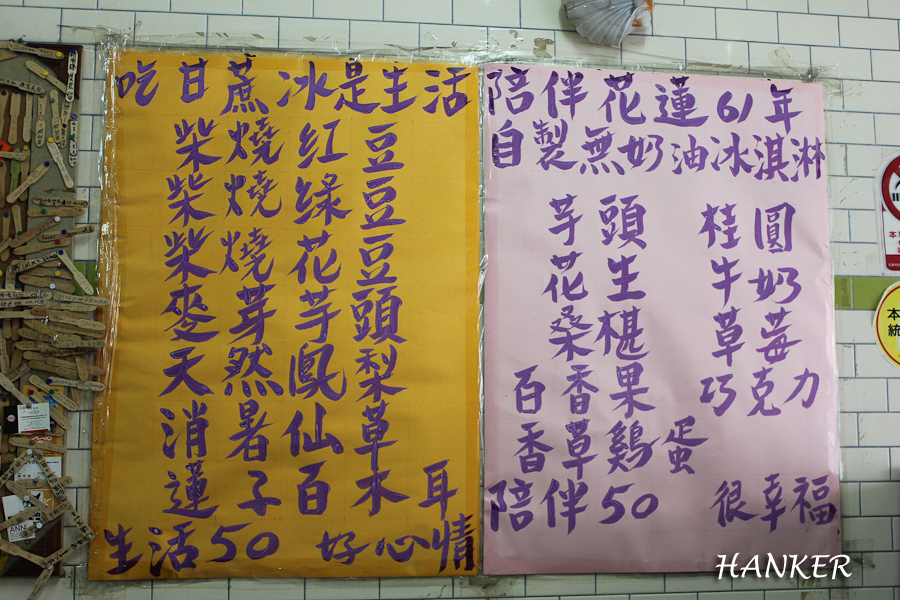 吃甘蔗冰是生活
柴燒紅豆
柴燒绿豆
柴燒花豆
麥芽芋頭
天然鳳梨
消暑仙草
蓮子百木耳
生活50 好心情
陪伴花蓮61年
自製無奶油冰淇淋
芋頭 桂圓
花生 牛奶
桑椹 草莓
百香果 巧克力
香草鷄蛋
陪伴50 很幸福
HANKER